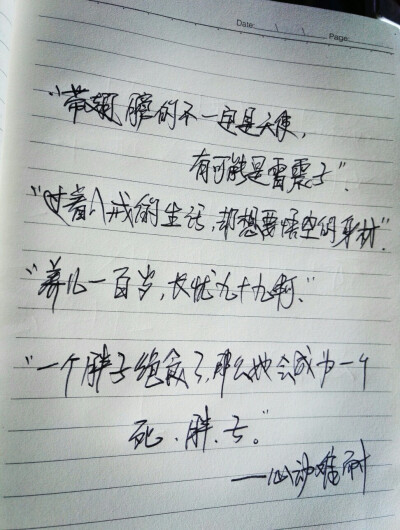 Date:
Page:
"带翅膀的不一定是天使,
有可能是雷震子".
"过着八戒的生活,却想要悟空的身材".
"养儿一百岁,长忧九十九啊."
"一个胖子绝食了,那么她会成为一个
死.胖.子。"
——心动难耐